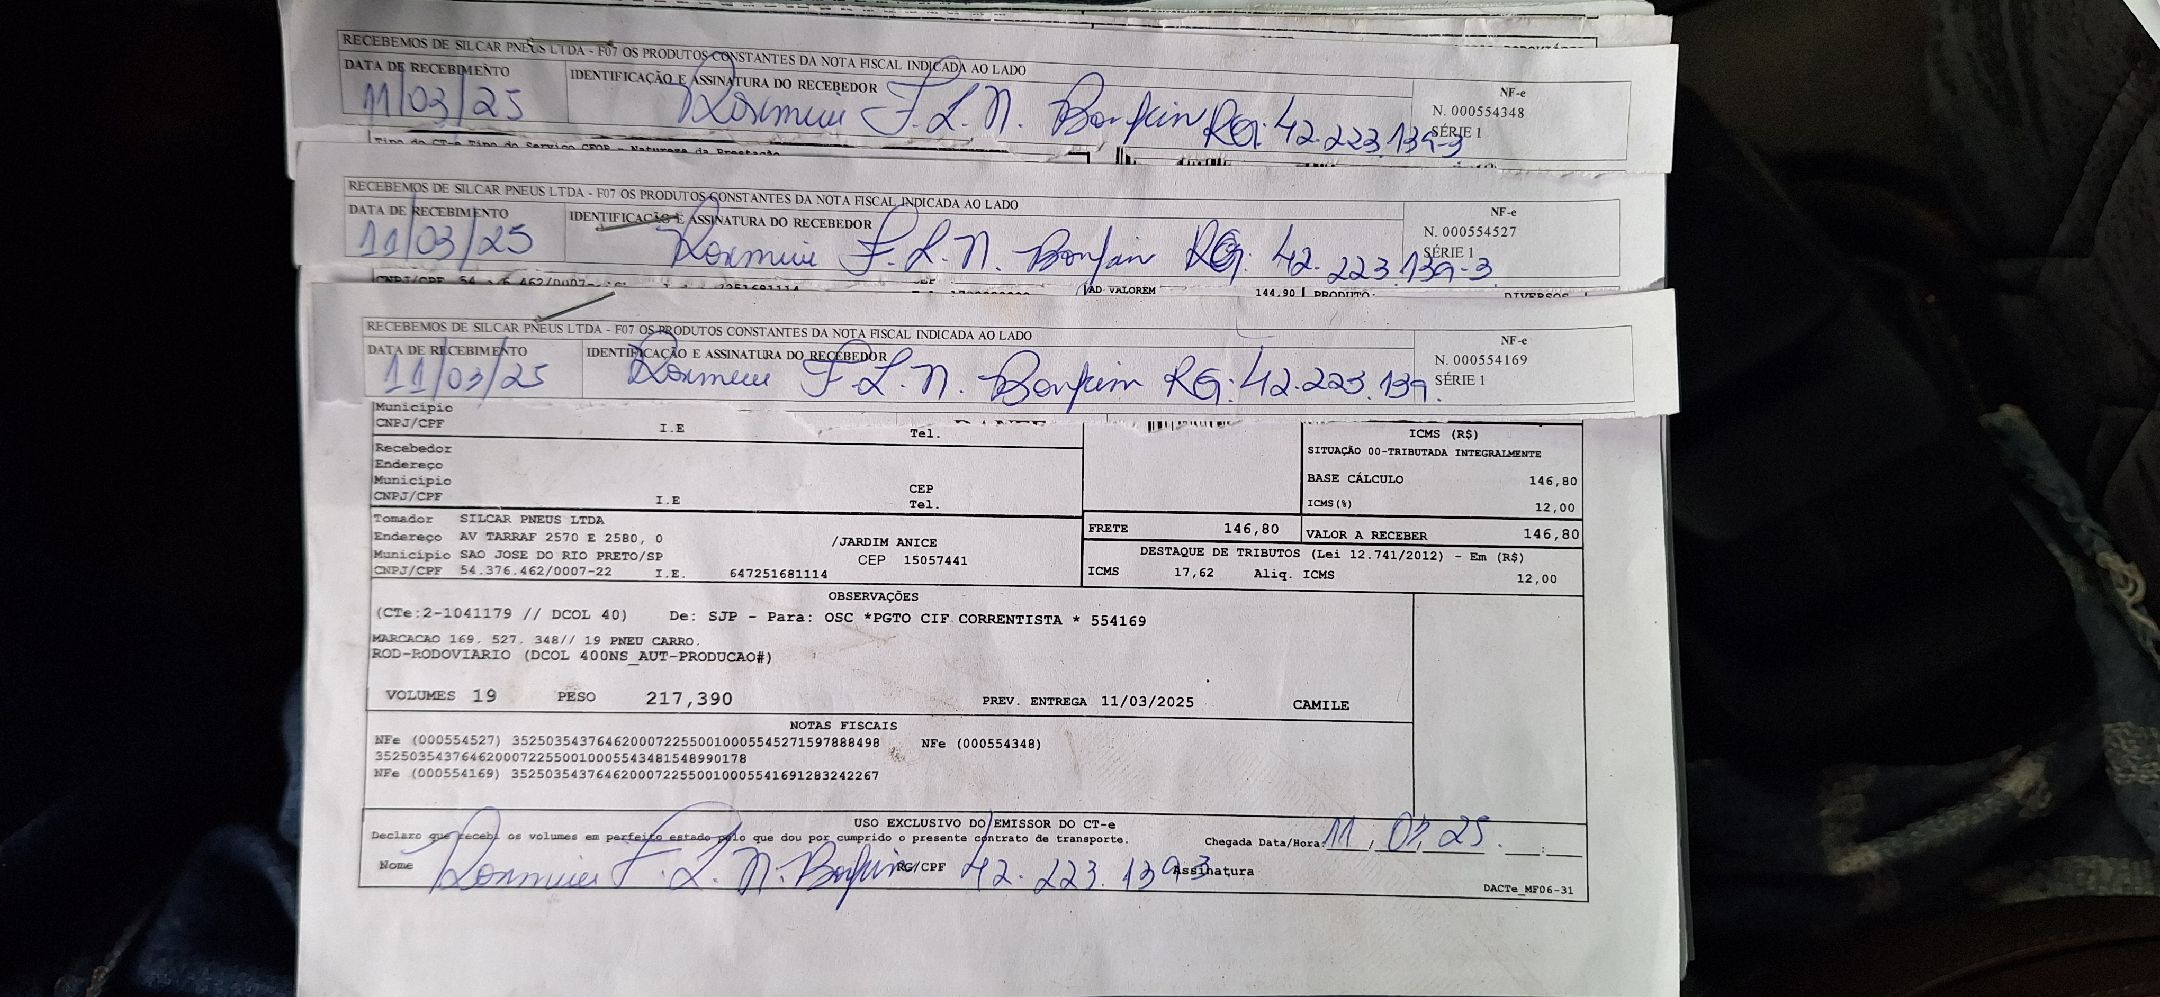 RECEBEMOS DE SILCAR PNEUS LTDA - F07 OS PRODUTOS CONSTANTES DA NOTA FISCAL INDICADA AO LADO
DATA DE RECEBIMENTO IDENTIFICAÇÃO E ASSINATURA DO RECEBEDOR NF-e
11/03/25 F. L. N. Bonfim RG: 42.223.139-3 N. 000554348
SÉRIE 1
Tipo do CT-e Tipo do Serviço CFOP - Natureza da Prestação
RECEBEMOS DE SILCAR PNEUS LTDA - F07 OS PRODUTOS CONSTANTES DA NOTA FISCAL INDICADA AO LADO
DATA DE RECEBIMENTO IDENTIFICAÇÃO E ASSINATURA DO RECEBEDOR NF-e
11/03/25 F. L. N. Bonfim RG: 42.223.139-3 N. 000554527
SÉRIE 1
AD VALOREM 144,90 PRODUTO: DIVERSOS
RECEBEMOS DE SILCAR PNEUS LTDA - F07 OS PRODUTOS CONSTANTES DA NOTA FISCAL INDICADA AO LADO
DATA DE RECEBIMENTO IDENTIFICAÇÃO E ASSINATURA DO RECEBEDOR NF-e
11/03/25 F. L. N. Bonfim RG: 42.223.139. N. 000554169
SÉRIE 1
Município
CNPJ/CPF I.E Tel. ICMS (R$)
Recebedor SITUAÇÃO 00-TRIBUTADA INTEGRALMENTE
Endereço
Município CEP BASE CÁLCULO 146,80
CNPJ/CPF I.E Tel. ICMS(%) 12,00
Tomador SILCAR PNEUS LTDA FRETE 146,80 VALOR A RECEBER 146,80
Endereço AV TARRAF 2570 E 2580, 0 /JARDIM ANICE
Município SAO JOSE DO RIO PRETO/SP CEP 15057441 DESTAQUE DE TRIBUTOS (Lei 12.741/2012) - Em (R$)
CNPJ/CPF 54.376.462/0007-22 I.E. 647251681114 ICMS 17,62 Aliq. ICMS 12,00
OBSERVAÇÕES
(CTe:2-1041179 // DCOL 40) De: SJP - Para: OSC *PGTO CIF CORRENTISTA * 554169
MARCACAO 169. 527. 348// 19 PNEU CARRO.
ROD-RODOVIARIO (DCOL 400NS_AUT-PRODUCAO#)
VOLUMES 19 PESO 217,390 PREV. ENTREGA 11/03/2025 CAMILE
NOTAS FISCAIS
NFe (000554527) 35250354376462000722550010005545271597888498 NFe (000554348)
35250354376462000722550010005543481548990178
NFe (000554169) 35250354376462000722550010005541691283242267
USO EXCLUSIVO DO EMISSOR DO CT-e
Declaro que recebi os volumes em perfeito estado pelo que dou por cumprido o presente contrato de transporte. Chegada Data/Hora: 11, 03, 25. __:__
Nome F. L. N. Bonfim RG/CPF 42.223.139-3 Assinatura
DACTe_MF06-31